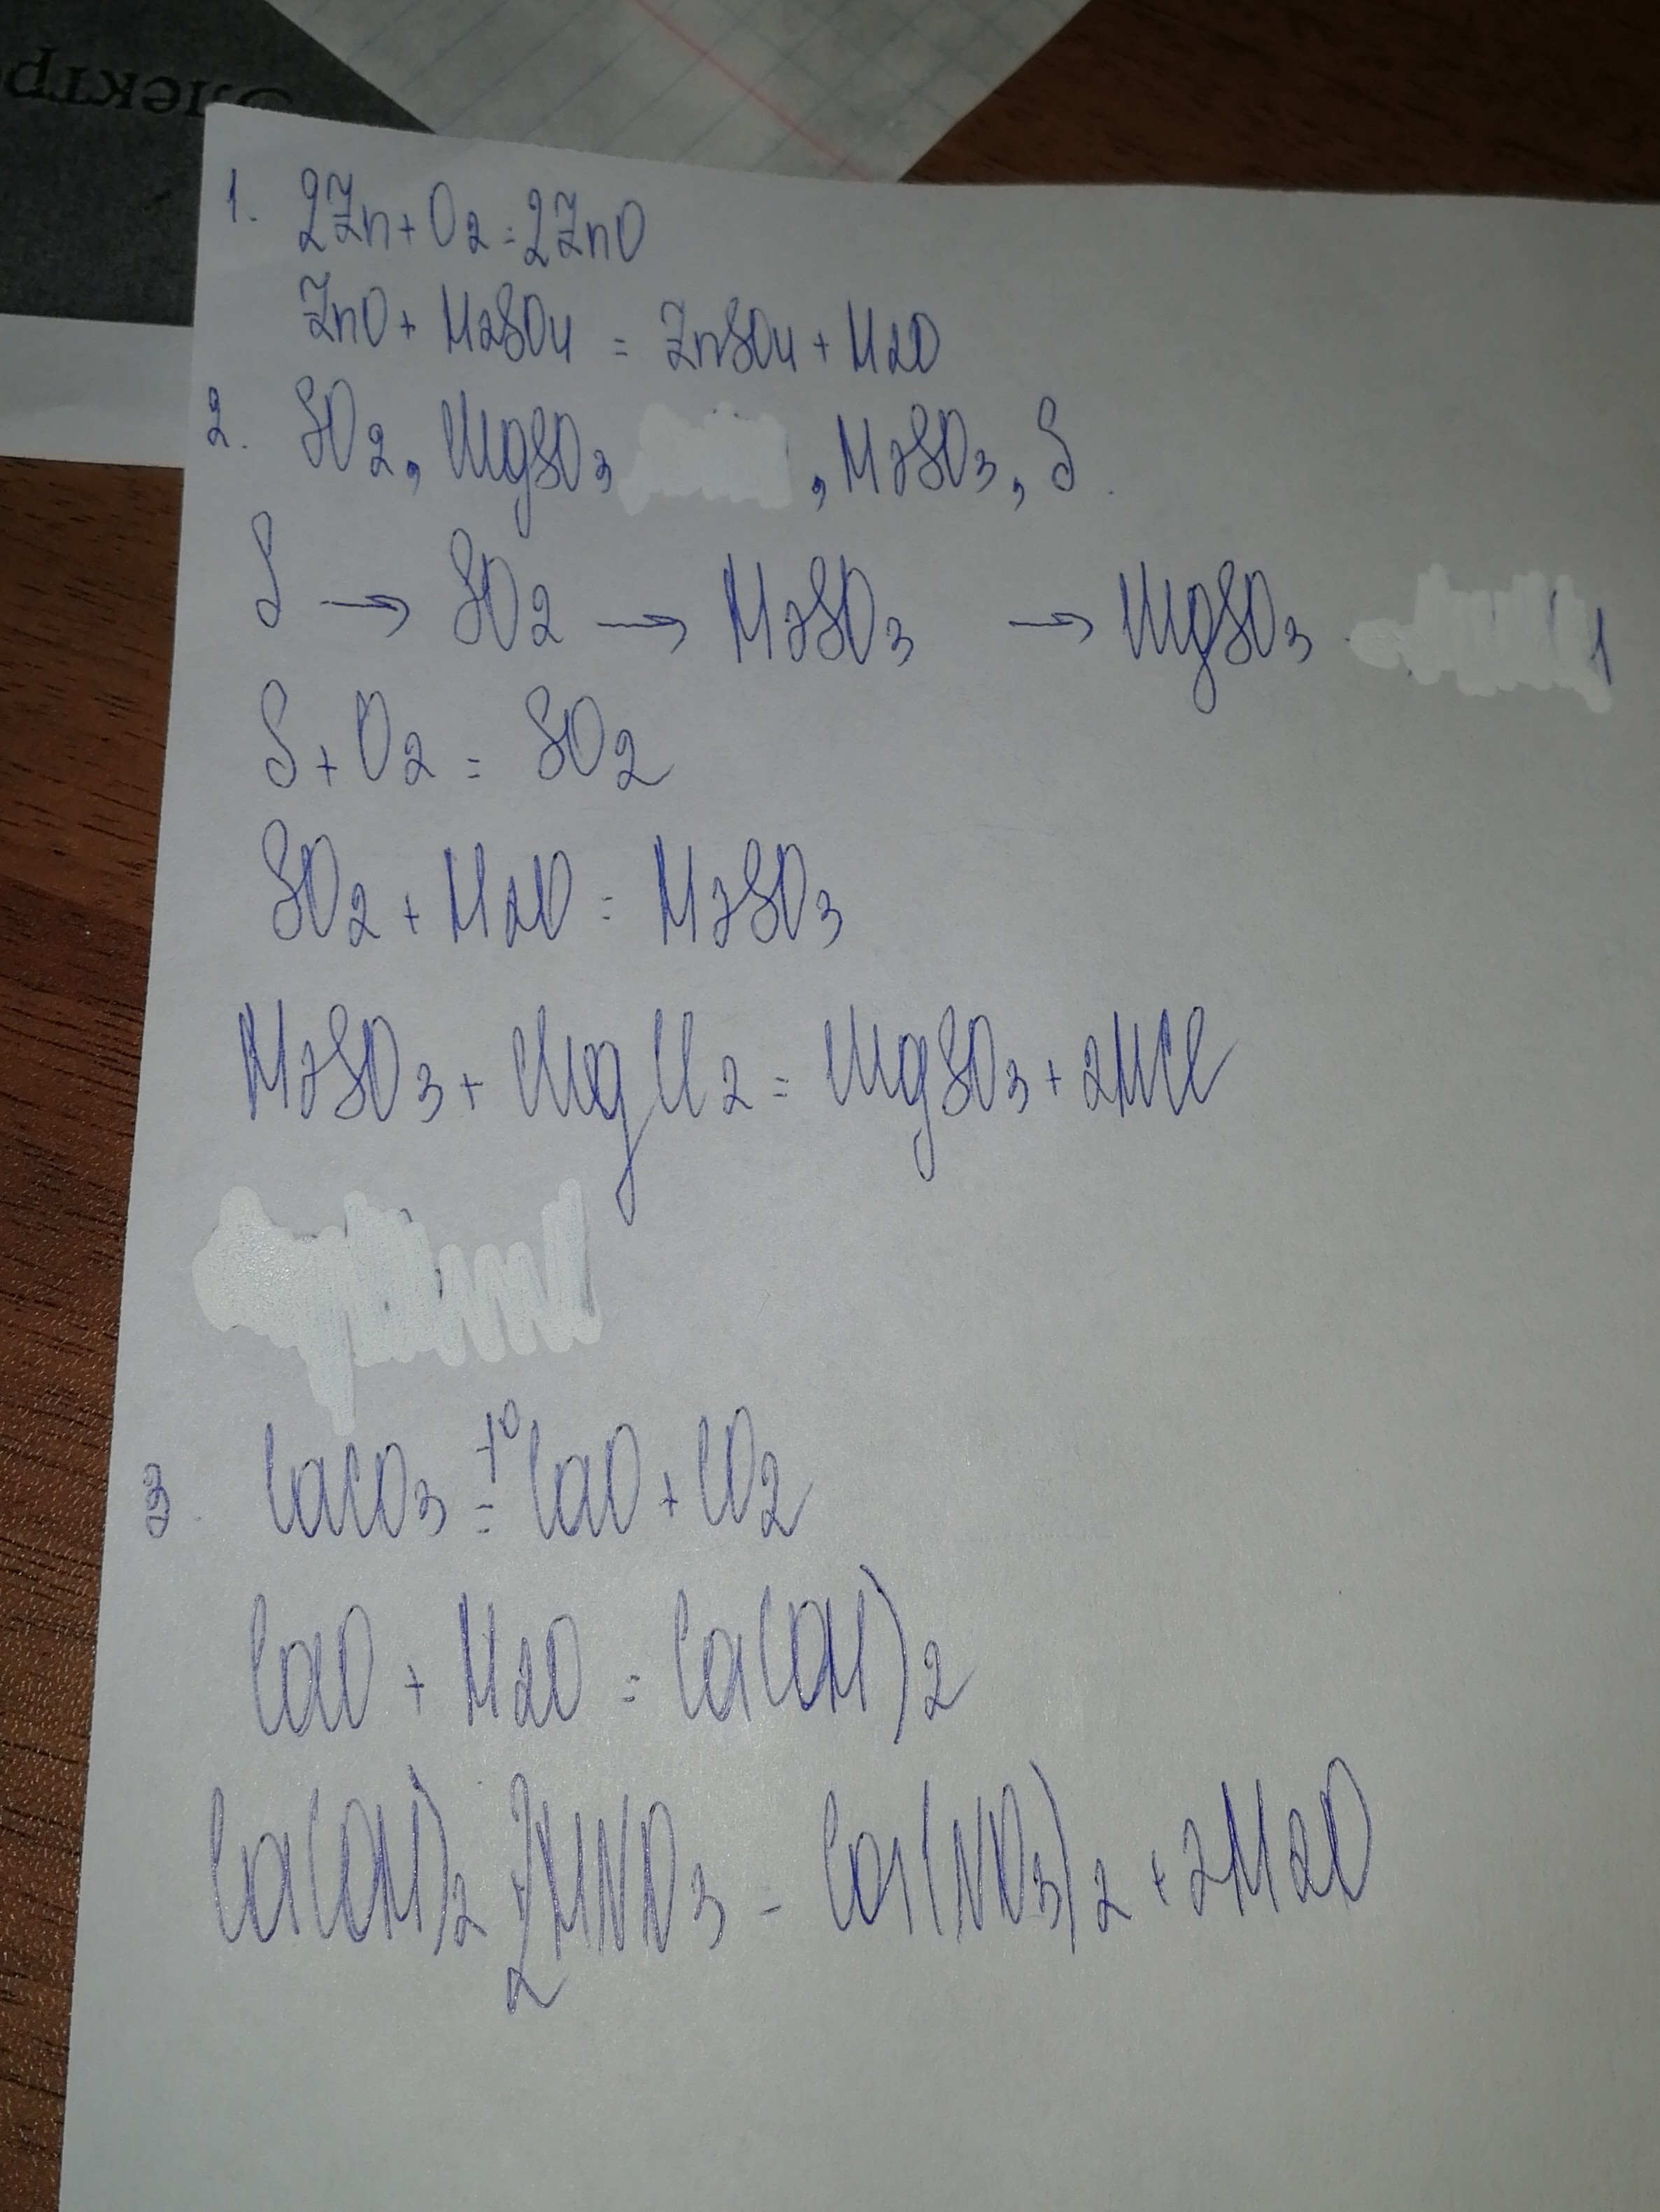 Электр
1. 2Zn + O2 = 2ZnO
ZnO + H2SO4 = ZnSO4 + H2O
2. SO2, MgSO3, H2SO3, S.
S → SO2 → H2SO3 → MgSO3
S + O2 = SO2
SO2 + H2O = H2SO3
H2SO3 + MgCl2 = MgSO3 + 2HCl
3. CaCO3 =t° CaO + CO2
CaO + H2O = Ca(OH)2
Ca(OH)2 + 2HNO3 = Ca(NO3)2 + 2H2O